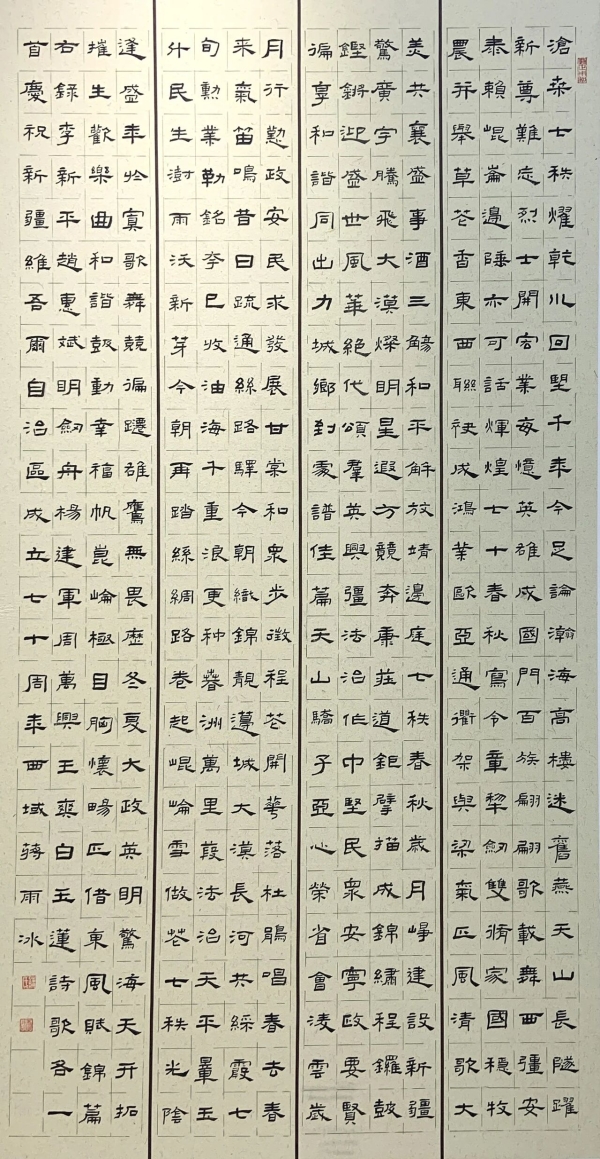 滄桑七秩燿乾巛回望千年今足論瀚海高樓迷舊燕天山長隧躍
新尊難忘烈士開宏業每憶英雄戍國門百族翩翩歌載舞西疆安
泰賴崐崙邊陲亦可話輝煌七十春秋寫令章犁劍雙脩家國穩牧
農并舉草花香東西聯袂成鴻業歐亞通衢架與梁氣正風清歌大
美共襄盛事酒三觴和平解放靖邊庭七秩春秋歲月崢建設新疆
驚廣宇騰飛大漠燦明星遐方競奔康莊道鉅擘描成錦繡程鑼鼓
鏗鏘迎盛世風華絕代頌羣英興疆法治作中堅民衆安寧政要賢
徧享和諧同出力城鄉到處譜佳篇天山驕子亞心榮省會凌雲歲
月行懃政安民求發展甘棠和衆步徵程花開華落杜鵑唱春去春
来氣笛鳴昔日疏通絲路驛今朝織錦靚城大漠長河共綵霞七
旬勳業勒銘巳收油海千重浪更种春洲萬里葭法治天平羣玉
外民生澍雨沃新芽今朝再踏絲綢路卷起崐崘雪做花七秩光陰
逢盛年於歌舞競徧躚雄鷹無畏歷冬夏大政英明驚海天开拓
摧生歡樂曲和諧鼓動幸福帆崑崘極目胸懷暢正借東風賦錦篇
右錄李新平趙惠斌明劍舟楊建軍周萬興王奕白玉蓮詩歌各一
首慶祝新疆維吾爾自治區成立七十周年西域蔣雨冰